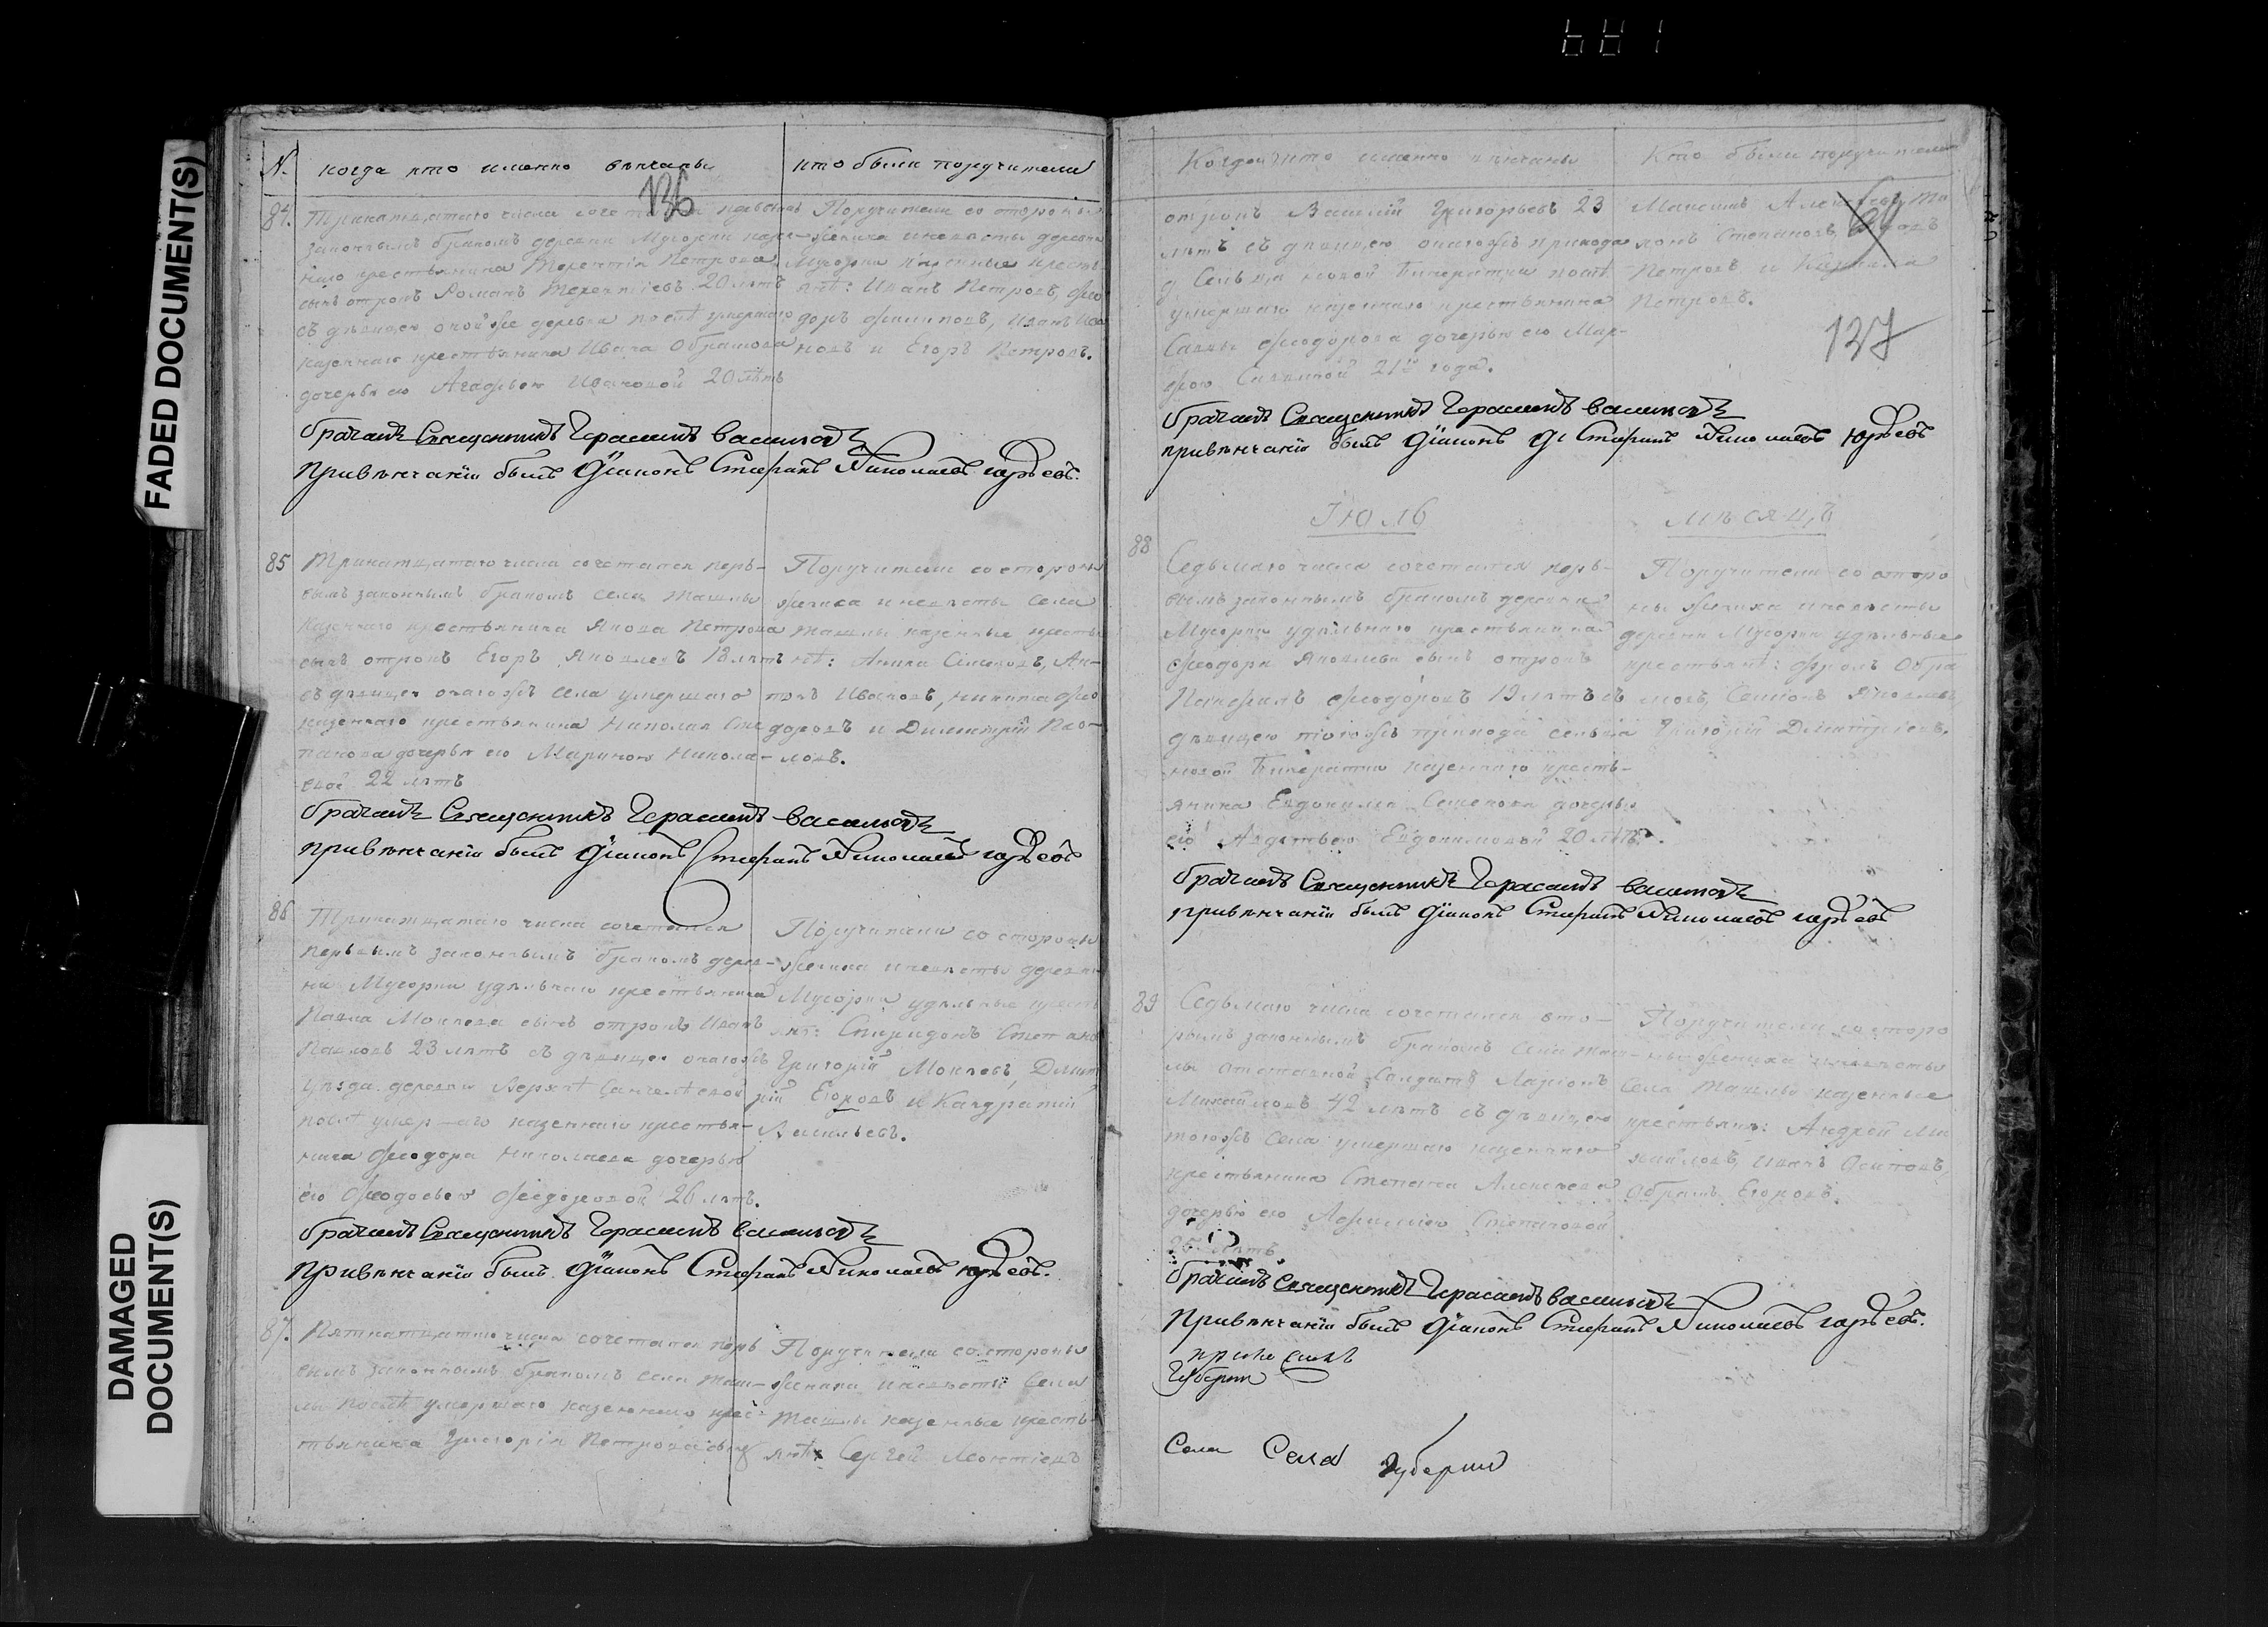 FADED DOCUMENT(S)
DAMAGED
DOCUMENT(S)
N. когда кто именно вѣнчаны
кто были поручители
136
84. Тринатцатаго числа сочетался первымъ
законнымъ бракомъ деревни Мусорки казен-
наго крестьянина Терентія Петрова
сынъ отрокъ Романъ Терентіевъ 20 лѣтъ
съ дѣвицею оной же деревни послѣ умершаго
казеннаго крестьянина Ивана Абрамова
дочерью его Агафьею Ивановой 20 лѣтъ
Поручители со стороны
жениха и невѣсты деревни
Мусорки казенные кресть
янѣ: Иванъ Петровъ, Фео
доръ Филиповъ, Иванъ Ива
новъ и Егоръ Петровъ.
бракъ вѣнчалъ Священникъ Герасимъ Васильевъ
при вѣнчаніи былъ Діаконъ Стефанъ Николаевъ Юрьевъ.
85 Тринатцатаго числа сочетался пер-
вымъ законнымъ бракомъ села Ташлы
казеннаго крестьянина Якова Петрова
сынъ отрокъ Егоръ Яковлевъ 18 лѣтъ
съ дѣвицею онагожъ села умершаго
казеннаго крестьянина Николая Сте
панова дочерью его Мариною Никола-
евой 22 лѣтъ
Поручители со стороны
жениха и невѣсты села
Ташлы казенные кресть
янѣ: Аника Симеоновъ, Ан-
тонъ Ивановъ, Никита Фео
доровъ и Димитрій Пав-
ловъ.
Священникъ Герасимъ Васильевъ
при вѣнчаніи былъ Діаконъ Стефанъ Николаевъ Юрьевъ
86 Тринатцатаго числа сочетался
первымъ законнымъ бракомъ дерев-
ни Мусорки удѣльнаго крестьянина
Павла Мокеева сынъ отрокъ Иванъ
Павловъ 23 лѣтъ съ дѣвицею онагожъ
уѣзда деревни Верхн Санчелѣевой
послѣ умер—аго казеннаго крестья-
нина Феодора Николаева дочерью
его Феодосьею Феодоровой 26 лѣтъ.
Поручители со стороны
жениха и невѣсты деревни
Мусорки удѣльные кресть
янѣ: Спиридонъ Степано
Григорій Мокеевъ, Димит
рій Егоровъ и Кандратій
Васильевъ.
Священникъ Герасимъ Васильевъ
При вѣнчаніи былъ Діаконъ Стефанъ Николаевъ Юрьевъ.
87. Пятнатцатаго числа сочетался перв
вымъ законнымъ бракомъ села Таш-
лы послѣ умершаго казеннаго крес-
тьянина Григорія Петрова сынъ
Поручители со стороны
жениха и невѣсты Села
Ташлы казенные кресть
янѣ Сергей Леонтіевъ
Когда и кто именно вѣнчаны
Кто были поручители
отрокъ Василій Григорьевъ 23
лѣтъ съ дѣвицею онагожъ прихода
Сельца новой Бинератки послѣ
умершаго казеннаго крестьянина
Саввы Феодорова дочерью его Мар-
фою Саввиной 21го года.
Максимъ
Степановъ,
Петровъ и
Петровъ.
137
Священникъ Герасимъ Васильевъ
при вѣнчаніи былъ Діаконъ Стефанъ Николаевъ Юрьевъ
Іюль мѣсяцъ
88
Седьмаго числа сочетался пер-
вымъ законнымъ бракомъ деревни
Мусорки удѣльнаго крестьянина
Феодора Яковлева сынъ отрокъ
Памфилъ Феодоровъ 19 лѣтъ съ
дѣвицею тогожъ прихода сельца
новой Бинератки казеннаго кресть-
янина Евдокима Семенова дочерью
его Авдотьею Евдокимовой 20 лѣтъ.
Поручители со сторо
ны жениха и невѣсты
деревни Мусорки удѣльные
крестьянѣ: Фролъ Абра
мовъ, Семіонъ Яковлевъ
Григорій Димитріевъ.
Священникъ Герасимъ Васильевъ
при вѣнчаніи былъ Діаконъ Стефанъ Николаевъ Юрьевъ
89 Седьмаго числа сочетался вто-
рымъ законнымъ бракомъ села Таш-
лы отставной Солдатъ Ларіонъ
Михайловъ 42 лѣтъ съ дѣвицею
тогожъ села умершаго казеннаго
крестьянина Степана Алексеева
дочерью его Афимiею Степановой
лѣтъ
Поручители со сторо
ны жениха и невѣсты
Села Ташлы казенные
крестьянѣ: Андрей Ми
хайловъ, Иванъ Осиповъ,
Абрамъ Егоровъ.
Священникъ Герасимъ Васильевъ
При вѣнчаніи былъ Діаконъ Стефанъ Николаевъ Юрьевъ.
Губерни
Села Села губернии